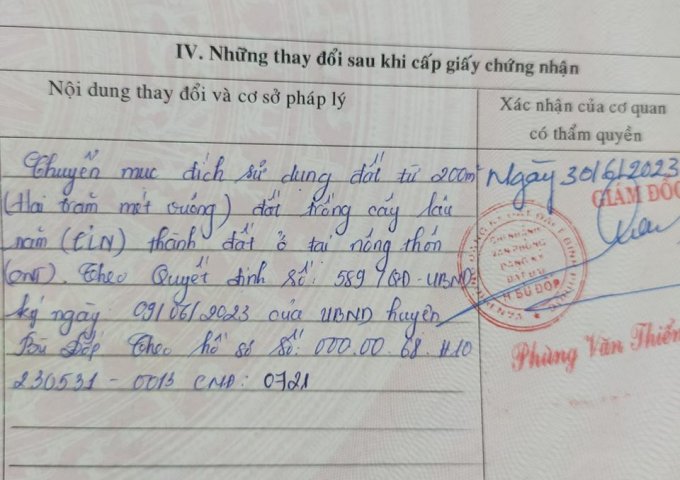 IV. Những thay đổi sau khi cấp giấy chứng nhận
Nội dung thay đổi và cơ sở pháp lý
Xác nhận của cơ quan
có thẩm quyền
Chuyển mục đích sử dụng đất từ 200m²
(Hai trăm mét vuông) đất trồng cây lâu
năm (CLN) thành đất ở tại nông thôn
(ONT). Theo Quyết định số: 589/QĐ-UBND
ký ngày 09/06/2023 của UBND huyện
Bù Đốp Theo hồ sơ số: 000.00.68.H10
230531-0013 CNĐ: 0721
Ngày 30/6/2023
GIÁM ĐỐC
CHI NHÁNH
VĂN PHÒNG
ĐĂNG KÝ
ĐẤT ĐAI
H. BÙ ĐỐP
Phùng Văn Thiển